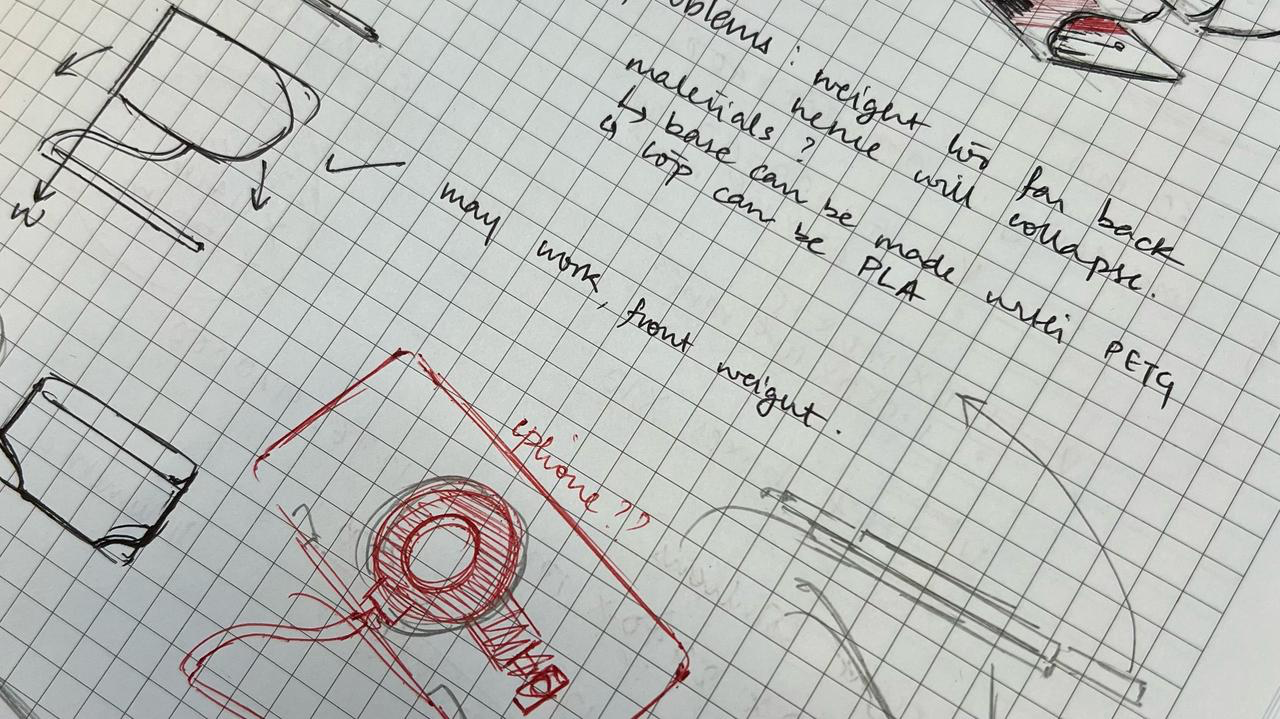 problems : weight too far back
hence will collapse.
materials ?
↳ base can be made with PETG
↳ top can be PLA
may work, front weight.
W
iphone ??